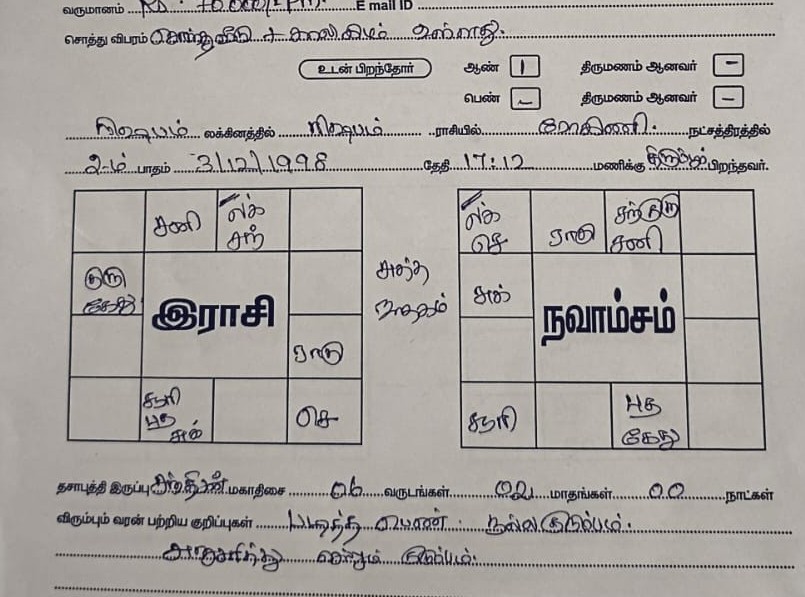 வருமானம் ...RD : 70,000/- (PM) E mail ID
சொத்து விபரம் சொந்த வீடு + காலி இடம் உள்ளது.
உடன் பிறந்தோர் ஆண் 1 திருமணம் ஆனவர் -
பெண் - திருமணம் ஆனவர் -
ரிஷபம் லக்கினத்தில் ரிஷபம் ராசியில் ரோகிணி. நட்சத்திரத்தில்
2-ம் பாதம் 3/12/1998 தேதி 17:12 மணிக்கு பிறந்தவர்.
சனி லக் லக் ராகு சந் குரு
சந் செ சனி
குரு சுக்
கேது
இராசி நவாம்சம்
ராகு
சூரி செ சூரி புத
புத கேது
சுக்
தசாபுத்தி இருப்பு சந்திரன் மகாதிசை 06 வருடங்கள் 02 மாதங்கள் 00 நாட்கள்
விரும்பும் வரன் பற்றிய குறிப்புகள் படித்த பெண். நல்ல குடும்பம்.
அனுசரித்து செல்லும் குடும்பம்.